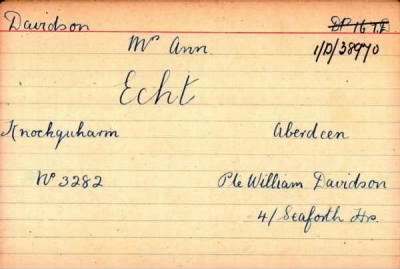 Davidson
Mrs Ann
1/D/38970
Echt
Knockquharn Aberdeen
No 3282 Pte William Davidson
4/ Seaforth Hrs.